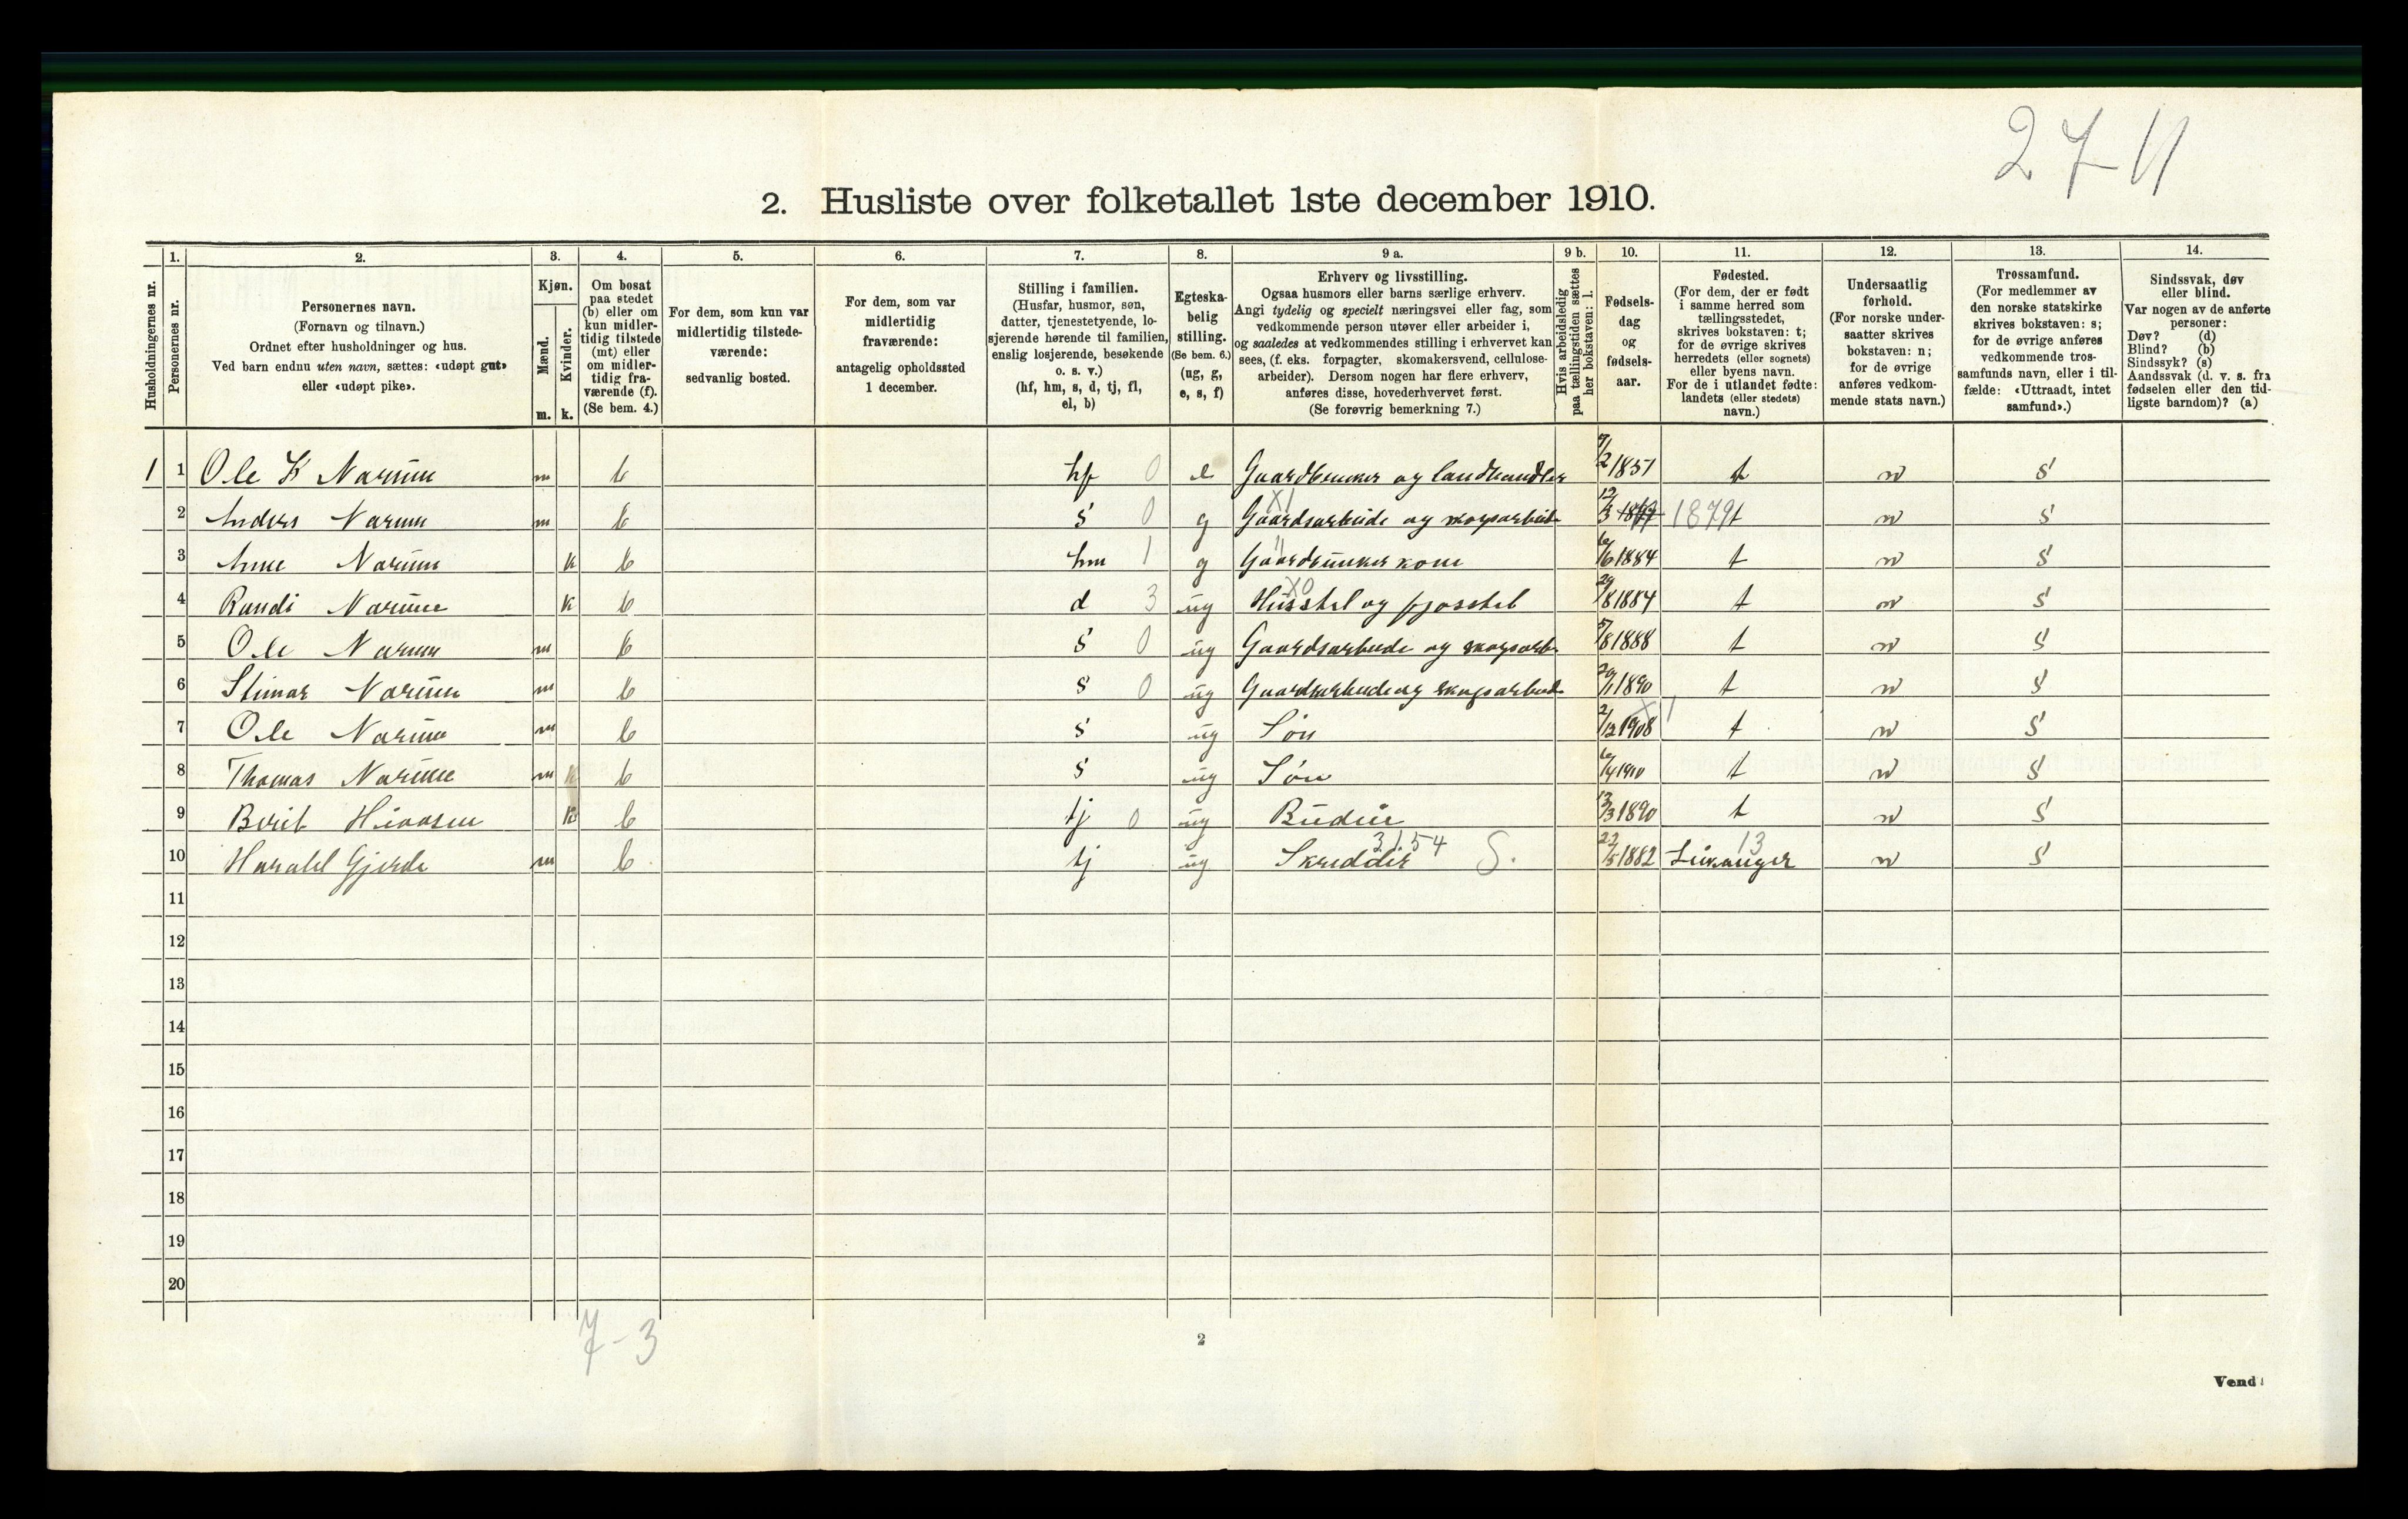 27 11
2. Husliste over folketallet 1ste december 1910.
Husholdningernes nr.
1. Personernes nr.
2. Personernes navn.
(Fornavn og tilnavn.)
Ordnet efter husholdninger og hus.
Ved barn endnu uten navn, sættes: «udøpt gut»
eller «udøpt pike».
3. Kjøn.
Mænd. m.
Kvinder. k.
4. Om bosat
paa stedet
(b) eller om
kun midler-
tidig tilstede
(mt) eller
om midler-
tidig fra-
værende (f).
(Se bem. 4.)
5. For dem, som kun var
midlertidig tilstede-
værende:
sedvanlig bosted.
6. For dem, som var
midlertidig
fraværende:
antagelig opholdssted
1 december.
7. Stilling i familien.
(Husfar, husmor, søn,
datter, tjenestetyende, lo-
sjerende hørende til familien,
enslig losjerende, besøkende
o. s. v.)
(hf, hm, s, d, tj, fl,
el, b)
8. Egteska-
belig
stilling.
(Se bem. 6.)
(ug, g,
e, s, f)
9 a. Erhverv og livsstilling.
Ogsaa husmors eller barns særlige erhverv.
Angi tydelig og specielt næringsvei eller fag, som
vedkommende person utøver eller arbeider i,
og saaledes at vedkommendes stilling i erhvervet kan
sees, (f. eks. forpagter, skomakersvend, cellulose-
arbeider). Dersom nogen har flere erhverv,
anføres disse, hovederhvervet først.
(Se forøvrig bemerkning 7.)
9 b. Hvis arbeidsledig
paa tællingstiden sættes
her bokstaven: l.
10. Fødsels-
dag
og
fødsels-
aar.
11. Fødested.
(For dem, der er født
i samme herred som
tællingsstedet,
skrives bokstaven: t;
for de øvrige skrives
herredets (eller sognets)
eller byens navn.
For de i utlandet fødte:
landets (eller stedets)
navn.)
12. Undersaatlig
forhold.
(For norske under-
saatter skrives
bokstaven: n;
for de øvrige
anføres vedkom-
mende stats navn.)
13. Trossamfund.
(For medlemmer av
den norske statskirke
skrives bokstaven: s;
for de øvrige anføres
vedkommende tros-
samfunds navn, eller i til-
fælde: «Uttraadt, intet
samfund».)
14. Sindssvak, døv
eller blind.
Var nogen av de anførte
personer:
Døv? (d)
Blind? (b)
Sindssyk? (s)
Aandssvak (d. v. s. fra
fødselen eller den tid-
ligste barndom)? (a)
1 1 Ole K Narum m b hf 0 e Gaardbruker og landhandler 7/2 1851 t n s
2 Anders Narum m b s 0 g X1 Gaardsarbeide og skogsarbeide 12/3 1879 t n s
3 Anne Narum k b hm 1 g " Gaardbruker kone 6/6 1884 t n s
4 Randi Narum k b d 3 ug X0 Husstel og fjosstel 29/8 1884 t n s
5 Ole Narum m b s 0 ug Gaardsarbeide og skogsarb. 5/8 1888 t n s
6 Stimar Narum m b s 0 ug Gaardsarbeide og skogsarbeid 20/11 1890 t n s
7 Ole Narum m b s ug Søn 2/12 1908 t n s
8 Thomas Narum m b s ug Søn 6/4 1910 t n s
9 Berit k b tj 0 ug Budeie 13/3 1890 t n s
10 Harald Gjerde m b tj ug Skredder 3154 S. 22/5 1882 13 n s
11
12
13
14
15
16
17
18
19
20
7-3
2
Vend!